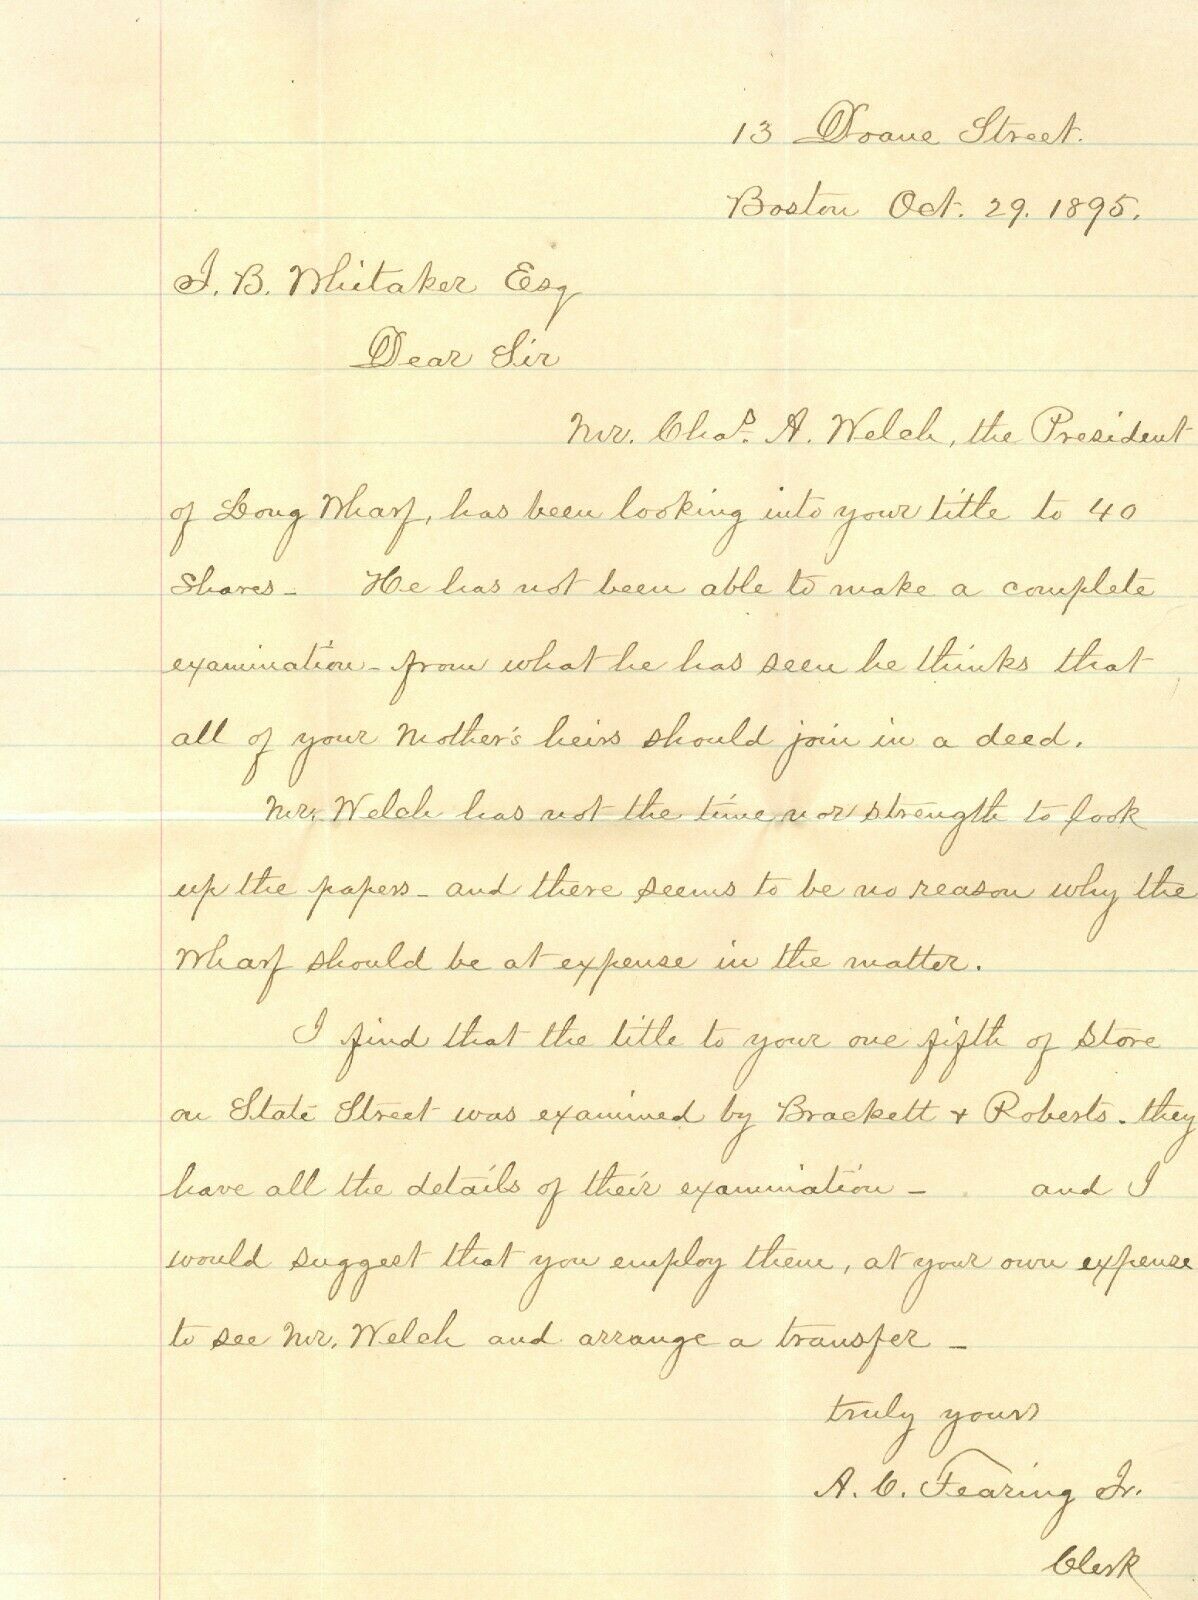 13 Doane Street.
Boston Oct. 29. 1895.
J. B. Whitaker Esq
Dear Sir
Mr. Chas. A. Welch, the President
of Long Wharf, has been looking into your title to 40
shares - He has not been able to make a complete
examination - from what he has seen he thinks that
all of your Mother's heirs should join in a deed.
Mr. Welch has not the time nor strength to look
up the papers - and there seems to be no reason why the
Wharf should be at expense in the matter.
I find that the title to your one fifth of store
on State Street was examined by Brackett & Roberts. they
have all the details of their examination - and I
would suggest that you employ them, at your own expense
to see Mr. Welch and arrange a transfer -
truly yours
A. C. Fearing Jr.
Clerk